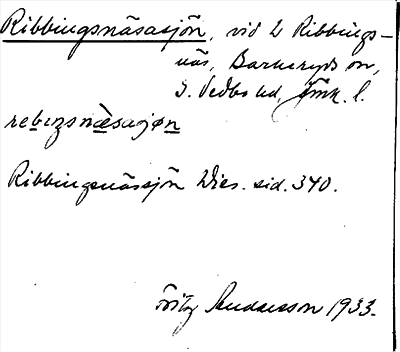 Ribbingsnäsasjön, vid L Ribbings-
näs, Barkeryds sn,
S. Vedbo hd, Jönk. l.
rebiŋsnæ̀sasjøn
Ribbingsnässjön Wies. sid. 340.
Fritz Andersson 1933.